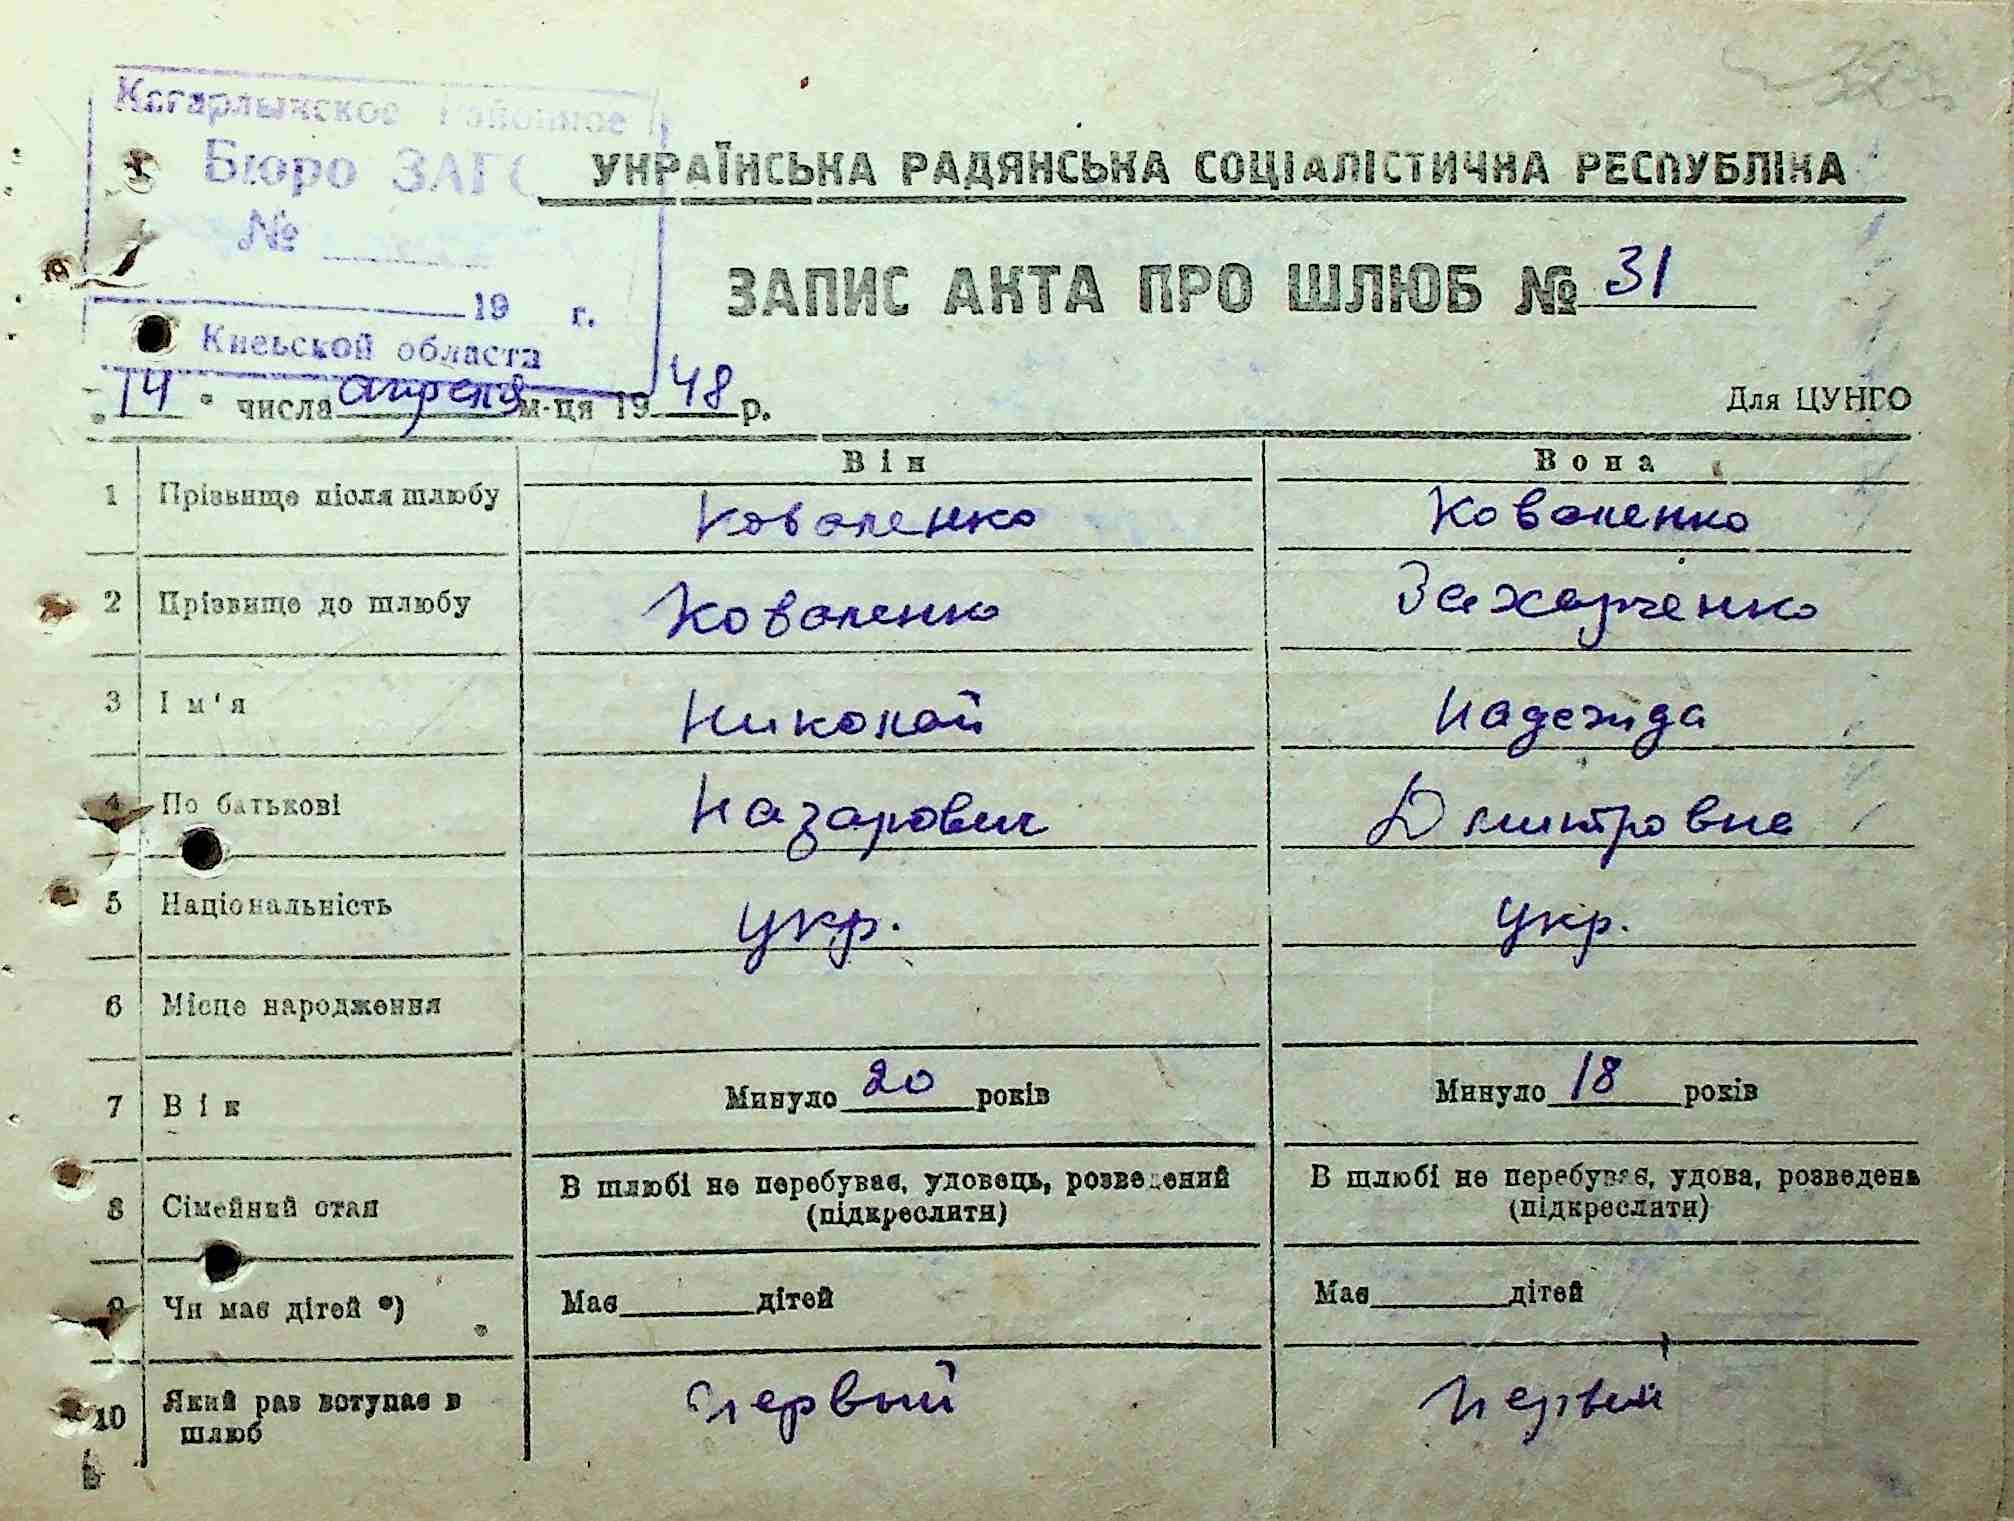 Кагарлыкское Районное
Бюро ЗАГС
№
19 г.
Киевской области
УКРАЇНСЬКА РАДЯНСЬКА СОЦІАЛІСТИЧНА РЕСПУБЛІКА
ЗАПИС АКТА ПРО ШЛЮБ № 31
"14" числа апреля м-ця 1948 р.
Для ЦУНГО
Він Вона
1 Прізвище після шлюбу Коваленко Коваленко
2 Прізвище до шлюбу Коваленко Захарченко
3 Ім'я Николай Надежда
4 По батькові Назарович Дмитровна
5 Національність укр. укр.
6 Місце народження
7 Вік Минуло 20 років Минуло 18 років
8 Сімейний стан В шлюбі не перебуває, удовець, розведений (підкреслити) В шлюбі не перебуває, удова, розведена (підкреслити)
9 Чи має дітей *) Має дітей Має дітей
10 Який раз вступає в шлюб первый первый